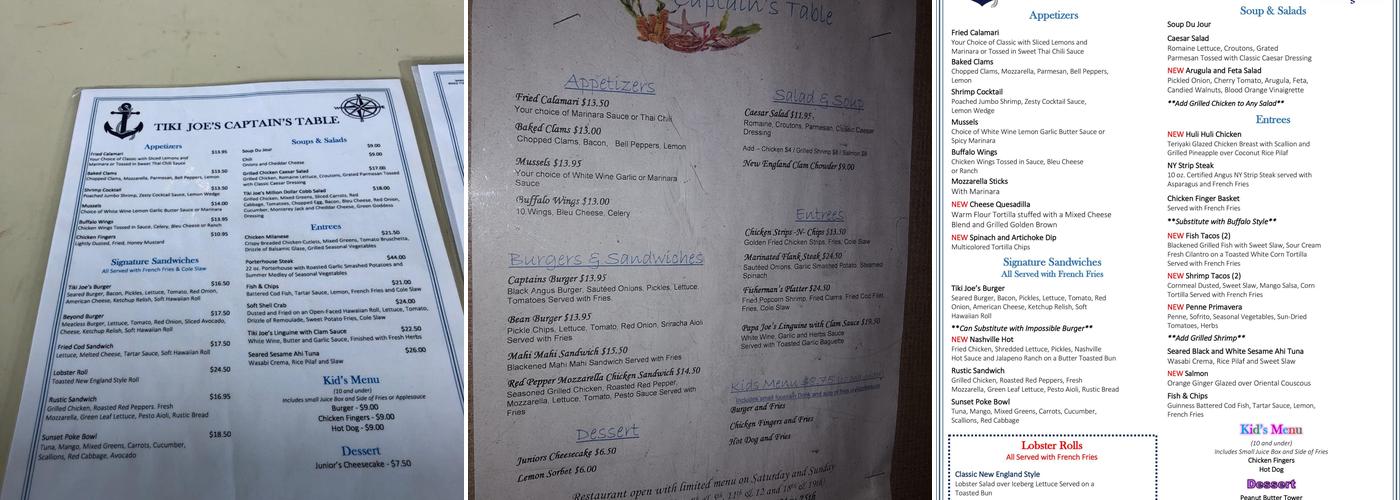 TIKI JOE'S CAPTAIN'S TABLE
Appetizers
Fried Calamari $13.95
Your Choice of Classic with Sliced Lemons and
Marinara or Tossed in Sweet Thai Chili Sauce
Baked Clams $13.50
Chopped Clams, Mozzarella, Parmesan, Bell Peppers, Lemon
Shrimp Cocktail $13.50
Poached Jumbo Shrimp, Zesty Cocktail Sauce, Lemon Wedge
Mussels $14.00
Choice of White Wine Lemon Garlic Butter Sauce or Marinara
Buffalo Wings $13.95
Chicken Wings Tossed in Sauce, Celery, Bleu Cheese or Ranch
Chicken Fingers $10.95
Lightly Dusted, Fried, Honey Mustard
Signature Sandwiches
All Served with French Fries & Cole Slaw
Tiki Joe's Burger $16.50
Seared Burger, Bacon, Pickles, Lettuce, Tomato, Red Onion,
American Cheese, Ketchup Relish, Soft Hawaiian Roll
Beyond Burger $17.50
Meatless Burger, Lettuce, Tomato, Red Onion, Sliced Avocado,
Cheese, Ketchup Relish, Soft Hawaiian Roll
Fried Cod Sandwich $17.50
Lettuce, Melted Cheese, Tartar Sauce, Soft Hawaiian Roll
Lobster Roll $24.50
Toasted New England Style Roll
Rustic Sandwich $16.95
Grilled Chicken, Roasted Red Peppers. Fresh
Mozzarella, Green Leaf Lettuce, Pesto Aioli, Rustic Bread
Sunset Poke Bowl $18.50
Tuna, Mango, Mixed Greens, Carrots, Cucumber,
Scallions, Red Cabbage, Avocado
Soups & Salads
Soup Du Jour $9.00
Chili $9.00
Onions and Cheddar Cheese
Grilled Chicken Caesar Salad $17.00
Grilled Chicken, Romaine Lettuce, Croutons, Grated Parmesan Tossed
with Classic Caesar Dressing
Tiki Joe's Million Dollar Cobb Salad $18.00
Grilled Chicken, Mixed Greens, Sliced Carrots, Red
Cabbage, Tomatoes, Chopped Egg, Bacon, Bleu Cheese, Red Onion,
Cucumber, Monterey Jack and Cheddar Cheese, Green Goddess
Dressing
Entrees
Chicken Milanese $21.50
Crispy Breaded Chicken Cutlets, Mixed Greens, Tomato Bruschetta,
Drizzle of Balsamic Glaze, Grilled Seasonal Vegetables
Porterhouse Steak $44.00
22 oz. Porterhouse with Roasted Garlic Smashed Potatoes and
Summer Medley of Seasonal Vegetables
Fish & Chips $21.00
Battered Cod Fish, Tartar Sauce, Lemon, French Fries and Cole Slaw
Soft Shell Crab $24.00
Dusted and Fried on an Open-Faced Hawaiian Roll, Lettuce, Tomato,
Drizzle of Remoulade, Sweet Potato Fries, Cole Slaw
Tiki Joe's Linguine with Clam Sauce $22.50
White Wine, Butter and Garlic Sauce, Finished with Fresh Herbs
Seared Sesame Ahi Tuna $26.00
Wasabi Crema, Rice Pilaf and Slaw
Kid's Menu
(10 and under)
Includes small Juice Box and Side of Fries or Applesauce
Burger - $9.00
Chicken Fingers - $9.00
Hot Dog - $9.00
Dessert
Junior's Cheesecake - $7.50
Captain's Table
Appetizers
Fried Calamari $13.50
Your choice of Marinara Sauce or Thai Chili
Baked Clams $13.00
Chopped Clams, Bacon, Bell Peppers, Lemon
Mussels $13.95
Your choice of White Wine Garlic or Marinara
Sauce
Buffalo Wings $13.00
10 Wings, Bleu Cheese, Celery
Burgers & Sandwiches
Captains Burger $13.95
Black Angus Burger, Sautéed Onions, Pickles, Lettuce,
Tomatoes Served with Fries.
Bean Burger $13.95
Pickle Chips, Lettuce, Tomato, Red Onion, Sriracha Aioli
Served with Fries
Mahi Mahi Sandwich $15.50
Blackened Mahi Mahi Sandwich Served with Fries
Red Pepper Mozzarella Chicken Sandwich $14.50
Seasoned Grilled Chicken, Roasted Red Pepper,
Mozzarella, Lettuce, Tomato, Pesto Sauce Served with
Fries
Dessert
Juniors Cheesecake $6.50
Lemon Sorbet $6.00
Salad & Soup
Caesar Salad $11.95
Romaine, Croutons, Parmesan, Classic Caesar
Dressing
Add – Chicken $4 / Grilled Shrimp $8 / Salmon $8
New England Clam Chowder $9.00
Entrees
Chicken Strips -N- Chips $13.50
Golden Fried Chicken Strips, Fries, Cole Slaw
Marinated Flank Steak $24.50
Sautéed Onions, Garlic Smashed Potatoes, Steamed
Spinach
Fisherman's Platter $24.50
Fried Popcorn Shrimp, Fried Clams, Fried Cod Filet,
Fries, Cole Slaw
Papa Joe's Linguine with Clam Sauce $19.50
White Wine, Garlic and Herbs Sauce
Served with Toasted Garlic Baguette
Kids Menu $9.75
Includes small fountain Drink and
Burger and Fries
Chicken Fingers and Fries
Hot Dog and Fries
Restaurant open with limited menu on Saturday and Sunday
Appetizers
Fried Calamari
Your Choice of Classic with Sliced Lemons and
Marinara or Tossed in Sweet Thai Chili Sauce
Baked Clams
Chopped Clams, Mozzarella, Parmesan, Bell Peppers,
Lemon
Shrimp Cocktail
Poached Jumbo Shrimp, Zesty Cocktail Sauce,
Lemon Wedge
Mussels
Choice of White Wine Lemon Garlic Butter Sauce or
Spicy Marinara
Buffalo Wings
Chicken Wings Tossed in Sauce, Bleu Cheese
or Ranch
Mozzarella Sticks
With Marinara
NEW Cheese Quesadilla
Warm Flour Tortilla stuffed with a Mixed Cheese
Blend and Grilled Golden Brown
NEW Spinach and Artichoke Dip
Multicolored Tortilla Chips
Signature Sandwiches
All Served with French Fries
Tiki Joe's Burger
Seared Burger, Bacon, Pickles, Lettuce, Tomato, Red
Onion, American Cheese, Ketchup Relish, Soft
Hawaiian Roll
**Can Substitute with Impossible Burger**
NEW Nashville Hot
Fried Chicken, Shredded Lettuce, Pickles, Nashville
Hot Sauce and Jalapeno Ranch on a Butter Toasted Bun
Rustic Sandwich
Grilled Chicken, Roasted Red Peppers, Fresh
Mozzarella, Green Leaf Lettuce, Pesto Aioli, Rustic Bread
Sunset Poke Bowl
Tuna, Mango, Mixed Greens, Carrots, Cucumber,
Scallions, Red Cabbage
Lobster Rolls
All Served with French Fries
Classic New England Style
Lobster Salad over Iceberg Lettuce Served on a
Toasted Bun
Soup & Salads
Soup Du Jour
Caesar Salad
Romaine Lettuce, Croutons, Grated
Parmesan Tossed with Classic Caesar Dressing
NEW Arugula and Feta Salad
Pickled Onion, Cherry Tomato, Arugula, Feta,
Candied Walnuts, Blood Orange Vinaigrette
**Add Grilled Chicken to Any Salad**
Entrees
NEW Huli Huli Chicken
Teriyaki Glazed Chicken Breast with Scallion and
Grilled Pineapple over Coconut Rice Pilaf
NY Strip Steak
10 oz. Certified Angus NY Strip Steak served with
Asparagus and French Fries
Chicken Finger Basket
Served with French Fries
**Substitute with Buffalo Style**
NEW Fish Tacos (2)
Blackened Grilled Fish with Sweet Slaw, Sour Cream
Fresh Cilantro on a Toasted White Corn Tortilla
Served with French Fries
NEW Shrimp Tacos (2)
Cornmeal Dusted, Sweet Slaw, Mango Salsa, Corn
Tortilla Served with French Fries
NEW Penne Primavera
Penne, Sofrito, Seasonal Vegetables, Sun-Dried
Tomatoes, Herbs
**Add Grilled Shrimp**
Seared Black and White Sesame Ahi Tuna
Wasabi Crema, Rice Pilaf and Sweet Slaw
NEW Salmon
Orange Ginger Glazed over Oriental Couscous
Fish & Chips
Guinness Battered Cod Fish, Tartar Sauce, Lemon,
French Fries
Kid's Menu
(10 and under)
Includes Small Juice Box and Side of Fries
Chicken Fingers
Hot Dog
Dessert
Peanut Butter Tower